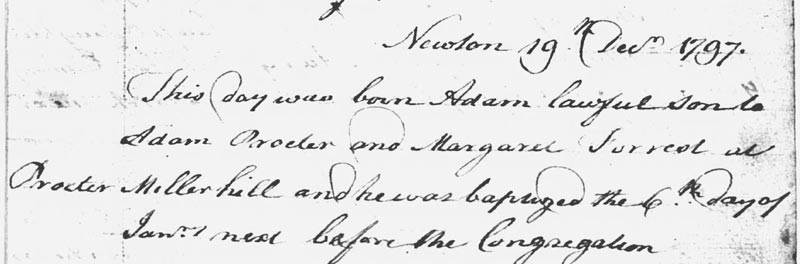 Newton 19th Decr 1797.
This day was born Adam lawful son to
Adam Procter and Margaret Forrest at
Procter Millerhill and he was baptized the 6th day of
Janry next before the Congregation